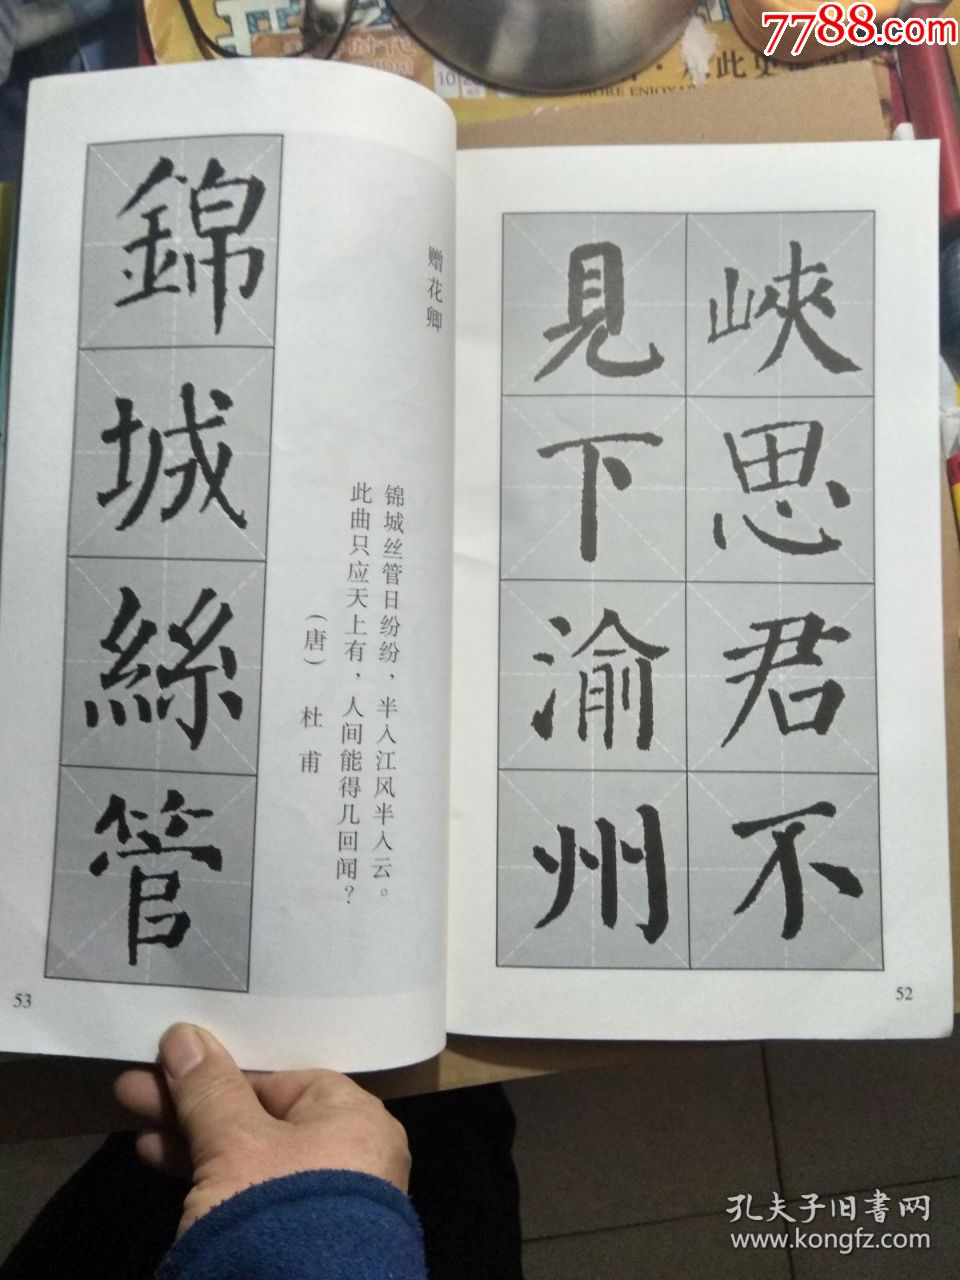 7788.com
时代
MORE ENJOY
峽思君不
見下渝州
52
赠花卿
锦城丝管日纷纷，半入江风半入云。
此曲只应天上有，人间能得几回闻？
（唐） 杜甫
錦城絲管
53
孔夫子旧书网
www.kongfz.com